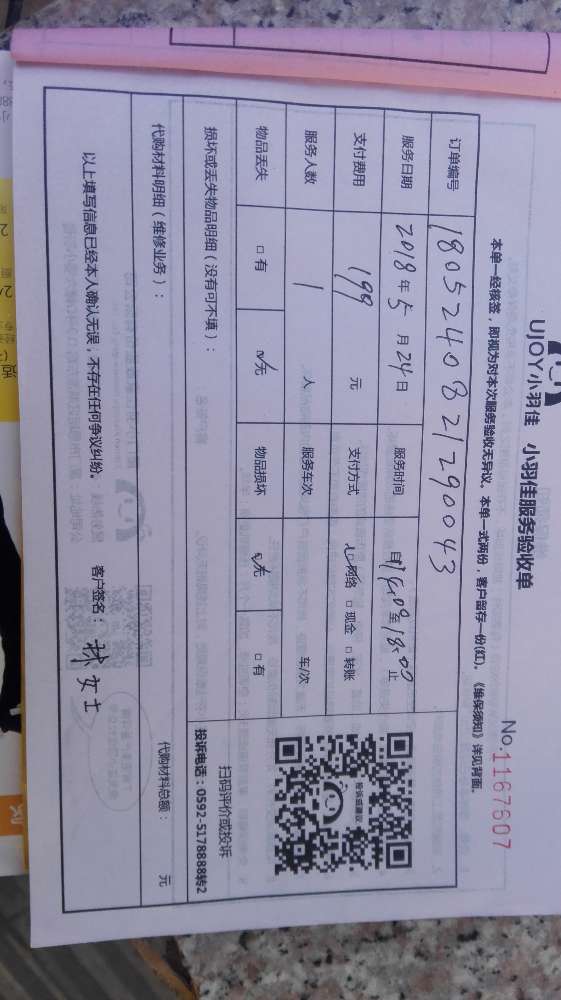 UJOY小羽佳 小羽佳服务验收单
No.1167607
本单一经核签，即视为对本次服务验收无异议。本单一式两份，客户留存一份(红)。《维保须知》详见背面。
订单编号 1805240821290043
服务日期 2018年5月24日 服务时间 自14:00至18:00止
支付费用 199 元 支付方式 □网络 □现金 □转账
服务人数 1 人 服务车次 车/次
物品丢失 □有 □无 物品损坏 □无 □有
投诉或建议
扫码评价或投诉
投诉电话：0592-5178888转2
损坏或丢失物品明细（没有可不填）：
代购材料明细（维修业务）： 代购材料总额： 元
以上填写信息已经本人确认无误，不存在任何争议纠纷。 客户签名：林女士